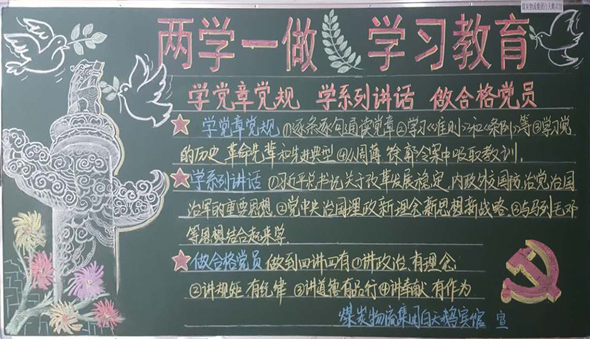 两学一做 学习教育
学党章党规 学系列讲话 做合格党员
学党章党规 ①逐条逐句通读党章②学习《准则》和《条例》等③学习党
的历史,革命先辈和先进典型④从周薄徐郭令案中吸取教训.
学系列讲话 ①习近平总书记关于改革发展稳定,内政外交国防治党治国
治军的重要思想②党中央治国理政新理念新思想新战略③与马列毛邓
等思想结合起来学
做合格党员 做到四讲四有①讲政治 有理念
②讲规矩 有纪律 ③讲道德有品行④讲奉献 有作为
煤炭物流集团白天鹅宾馆 宣